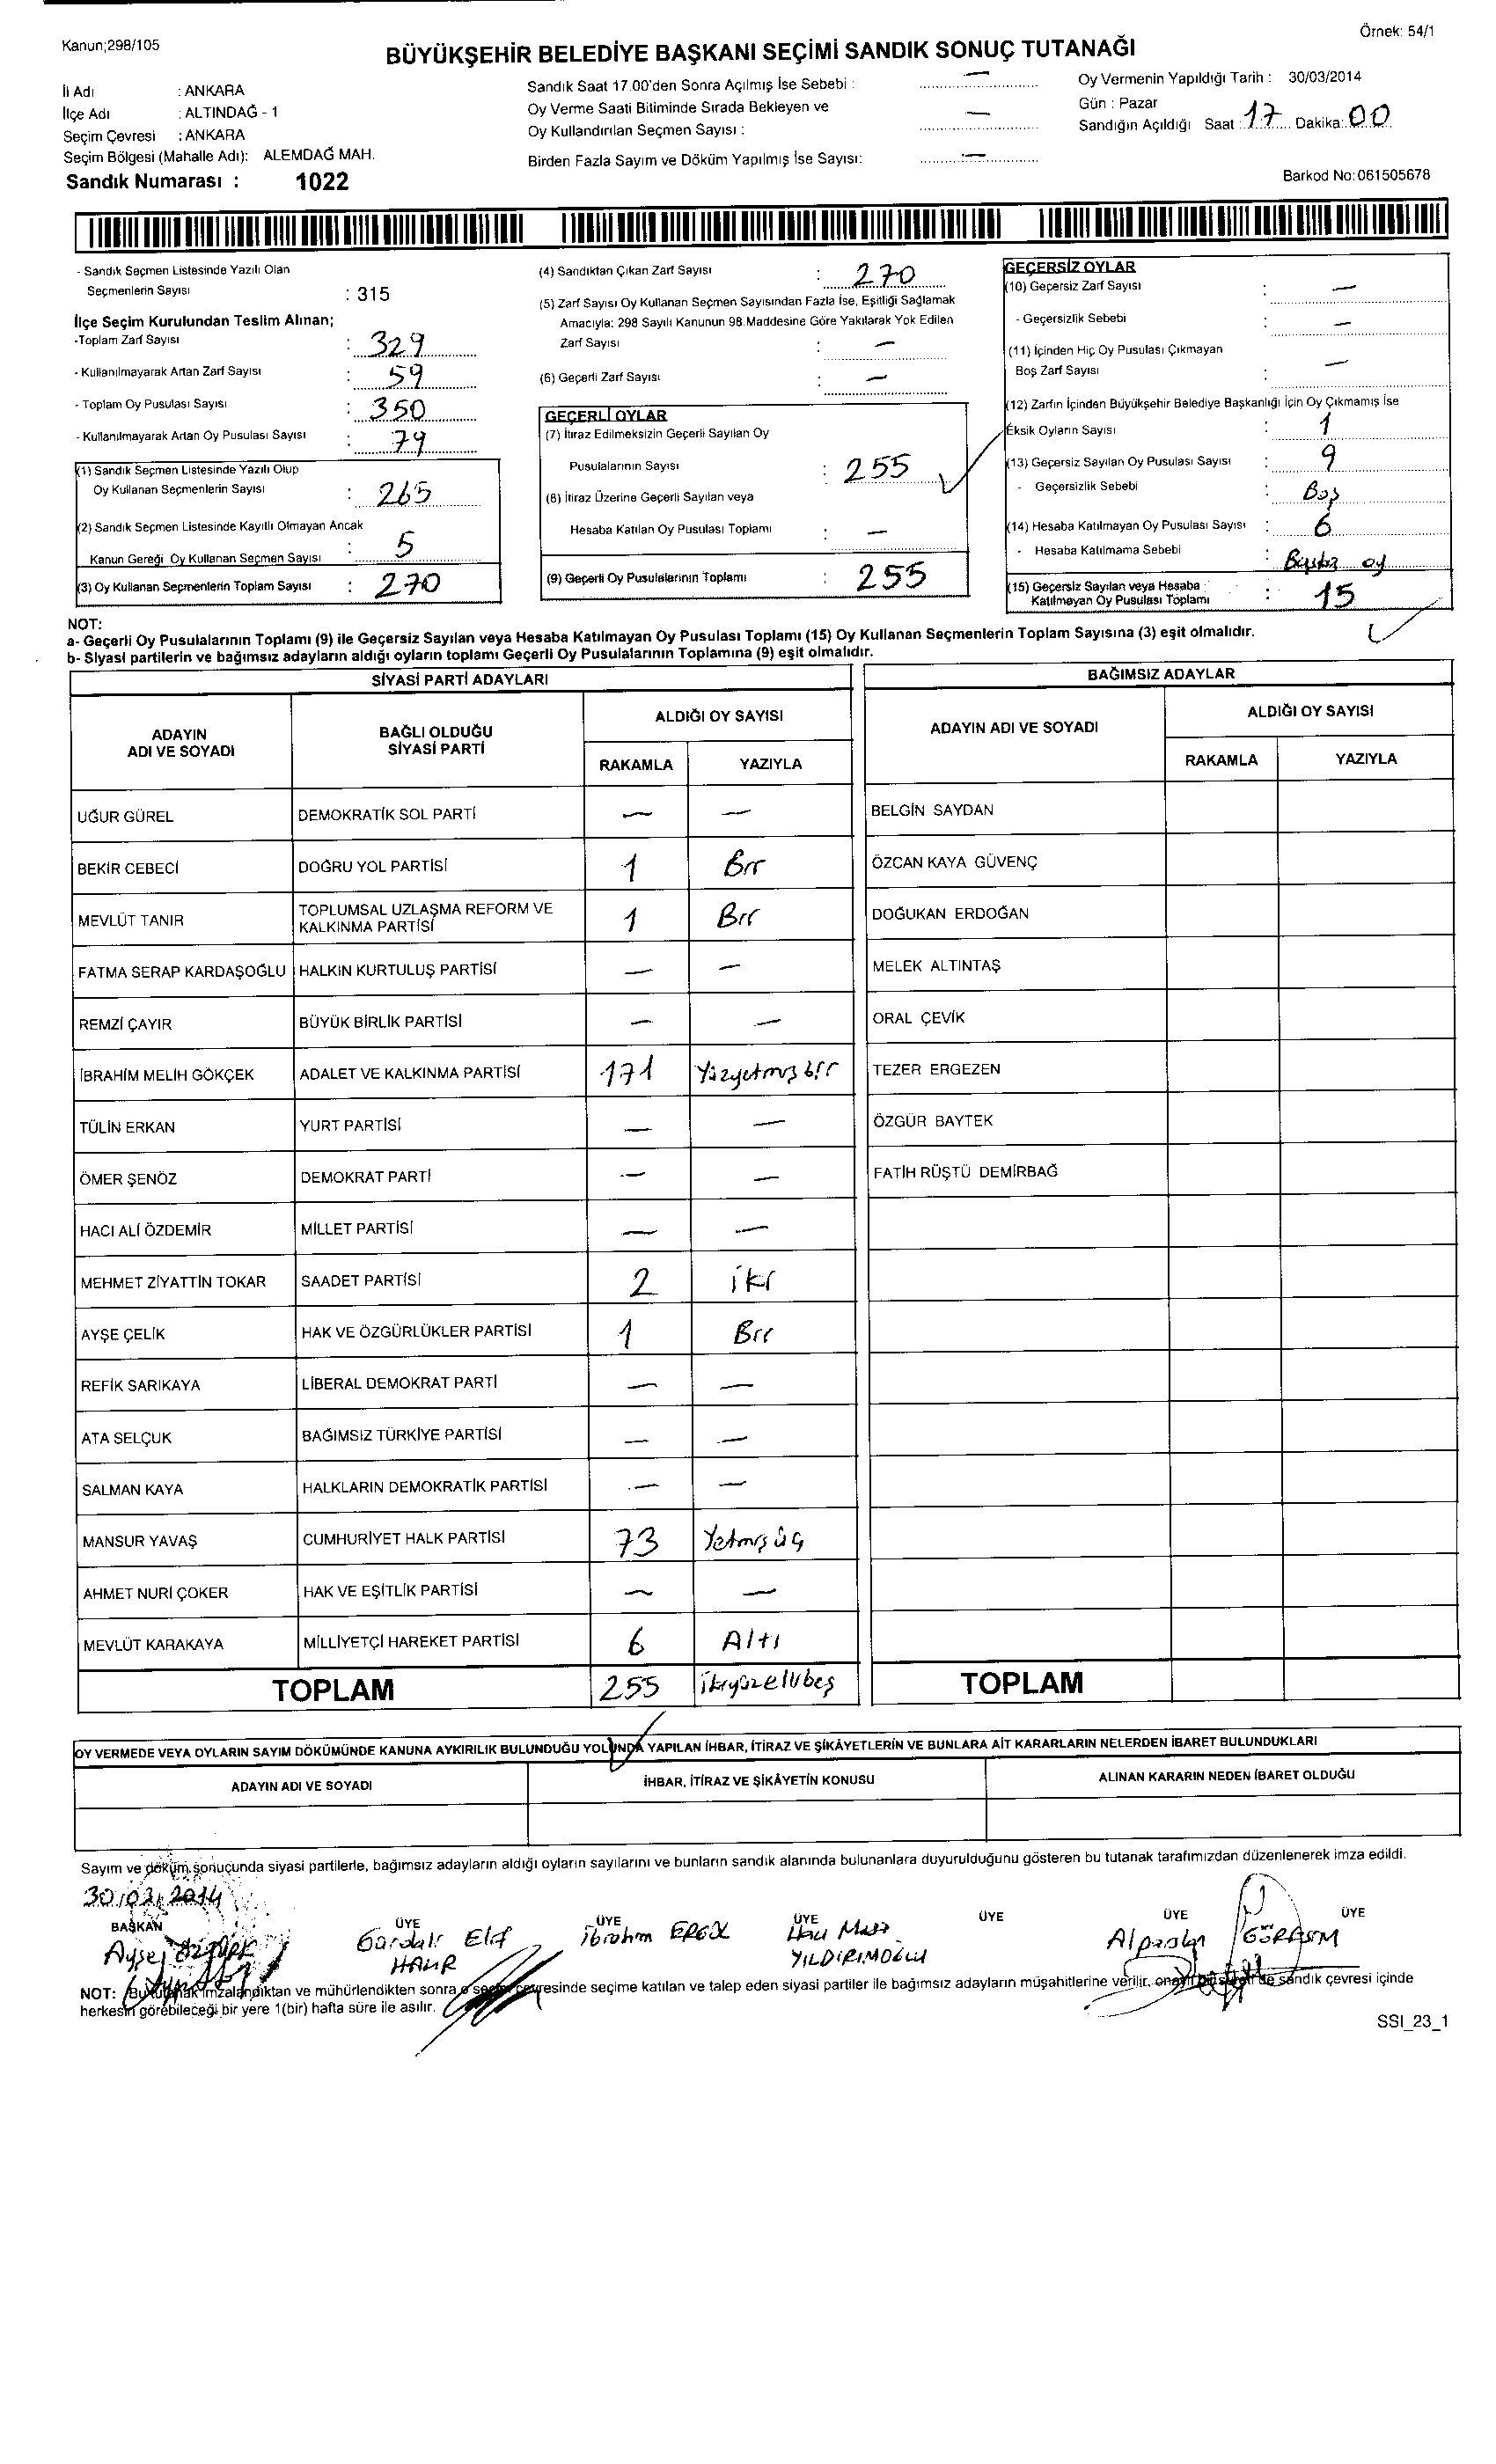 Kanun;298/105
Örnek: 54/1
BÜYÜKŞEHİR BELEDİYE BAŞKANI SEÇİMİ SANDIK SONUÇ TUTANAĞI
İl Adı : ANKARA
İlçe Adı : ALTINDAĞ - 1
Seçim Çevresi : ANKARA
Seçim Bölgesi (Mahalle Adı): ALEMDAĞ MAH.
Sandık Numarası : 1022
Sandık Saat 17.00'den Sonra Açılmış İse Sebebi : —
Oy Verme Saati Bitiminde Sırada Bekleyen ve
Oy Kullandırılan Seçmen Sayısı : —
Birden Fazla Sayım ve Döküm Yapılmış İse Sayısı: —
Oy Vermenin Yapıldığı Tarih : 30/03/2014
Gün : Pazar
Sandığın Açıldığı Saat : 17 Dakika: 00
Barkod No:061505678
- Sandık Seçmen Listesinde Yazılı Olan
Seçmenlerin Sayısı : 315
İlçe Seçim Kurulundan Teslim Alınan;
-Toplam Zarf Sayısı : 329
- Kullanılmayarak Artan Zarf Sayısı : 59
- Toplam Oy Pusulası Sayısı : 350
- Kullanılmayarak Artan Oy Pusulası Sayısı : 79
(1) Sandık Seçmen Listesinde Yazılı Olup
Oy Kullanan Seçmenlerin Sayısı : 265
(2) Sandık Seçmen Listesinde Kayıtlı Olmayan Ancak
Kanun Gereği Oy Kullanan Seçmen Sayısı : 5
(3) Oy Kullanan Seçmenlerin Toplam Sayısı : 270
(4) Sandıktan Çıkan Zarf Sayısı : 270
(5) Zarf Sayısı Oy Kullanan Seçmen Sayısından Fazla İse, Eşitliği Sağlamak
Amacıyla; 298 Sayılı Kanunun 98.Maddesine Göre Yakılarak Yok Edilen
Zarf Sayısı : —
(6) Geçerli Zarf Sayısı : —
GEÇERLİ OYLAR
(7) İtiraz Edilmeksizin Geçerli Sayılan Oy
Pusulalarının Sayısı : 255
(8) İtiraz Üzerine Geçerli Sayılan veya
Hesaba Katılan Oy Pusulası Toplamı : —
(9) Geçerli Oy Pusulalarının Toplamı : 255
GEÇERSİZ OYLAR
(10) Geçersiz Zarf Sayısı : —
- Geçersizlik Sebebi : —
(11) İçinden Hiç Oy Pusulası Çıkmayan
Boş Zarf Sayısı : —
(12) Zarfın İçinden Büyükşehir Belediye Başkanlığı İçin Oy Çıkmamış İse
Eksik Oyların Sayısı : 1
(13) Geçersiz Sayılan Oy Pusulası Sayısı : 9
- Geçersizlik Sebebi : Boş
(14) Hesaba Katılmayan Oy Pusulası Sayısı : 6
- Hesaba Katılmama Sebebi : oy
(15) Geçersiz Sayılan veya Hesaba
Katılmayan Oy Pusulası Toplamı : 15
NOT:
a- Geçerli Oy Pusulalarının Toplamı (9) ile Geçersiz Sayılan veya Hesaba Katılmayan Oy Pusulası Toplamı (15) Oy Kullanan Seçmenlerin Toplam Sayısına (3) eşit olmalıdır.
b- Siyasi partilerin ve bağımsız adayların aldığı oyların toplamı Geçerli Oy Pusulalarının Toplamına (9) eşit olmalıdır.
SİYASİ PARTİ ADAYLARI
ADAYIN ADI VE SOYADI
BAĞLI OLDUĞU SİYASİ PARTİ
ALDIĞI OY SAYISI
RAKAMLA YAZIYLA
UĞUR GÜREL DEMOKRATİK SOL PARTİ — —
BEKİR CEBECİ DOĞRU YOL PARTİSİ 1 Bir
MEVLÜT TANIR TOPLUMSAL UZLAŞMA REFORM VE KALKINMA PARTİSİ 1 Bir
FATMA SERAP KARDAŞOĞLU HALKIN KURTULUŞ PARTİSİ — —
REMZİ ÇAYIR BÜYÜK BİRLİK PARTİSİ — —
İBRAHİM MELİH GÖKÇEK ADALET VE KALKINMA PARTİSİ 171 Yüzyetmiş bir
TÜLİN ERKAN YURT PARTİSİ — —
ÖMER ŞENÖZ DEMOKRAT PARTİ — —
HACI ALİ ÖZDEMİR MİLLET PARTİSİ — —
MEHMET ZİYATTİN TOKAR SAADET PARTİSİ 2 iki
AYŞE ÇELİK HAK VE ÖZGÜRLÜKLER PARTİSİ 1 Bir
REFİK SARIKAYA LİBERAL DEMOKRAT PARTİ — —
ATA SELÇUK BAĞIMSIZ TÜRKİYE PARTİSİ — —
SALMAN KAYA HALKLARIN DEMOKRATİK PARTİSİ — —
MANSUR YAVAŞ CUMHURİYET HALK PARTİSİ 73 Yetmiş üç
AHMET NURİ ÇOKER HAK VE EŞİTLİK PARTİSİ — —
MEVLÜT KARAKAYA MİLLİYETÇİ HAREKET PARTİSİ 6 Altı
TOPLAM 255 ikiyüzellibeş
BAĞIMSIZ ADAYLAR
ADAYIN ADI VE SOYADI
ALDIĞI OY SAYISI
RAKAMLA YAZIYLA
BELGİN SAYDAN
ÖZCAN KAYA GÜVENÇ
DOĞUKAN ERDOĞAN
MELEK ALTINTAŞ
ORAL ÇEVİK
TEZER ERGEZEN
ÖZGÜR BAYTEK
FATİH RÜŞTÜ DEMİRBAĞ
TOPLAM
OY VERMEDE VEYA OYLARIN SAYIM DÖKÜMÜNDE KANUNA AYKIRILIK BULUNDUĞU YOLUNDA YAPILAN İHBAR, İTİRAZ VE ŞİKÂYETLERİN VE BUNLARA AİT KARARLARIN NELERDEN İBARET BULUNDUKLARI
ADAYIN ADI VE SOYADI İHBAR, İTİRAZ VE ŞİKÂYETİN KONUSU ALINAN KARARIN NEDEN İBARET OLDUĞU
Sayım ve döküm sonucunda siyasi partilerle, bağımsız adayların aldığı oyların sayılarını ve bunların sandık alanında bulunanlara duyurulduğunu gösteren bu tutanak tarafımızdan düzenlenerek imza edildi.
30/03/2014
BAŞKAN ÜYE ÜYE ÜYE ÜYE ÜYE ÜYE
Elif İbrahim EROL Alpaslan
YILDIRIMOĞLU
NOT: Bu tutanak imzalandıktan ve mühürlendikten sonra o seçim çevresinde seçime katılan ve talep eden siyasi partiler ile bağımsız adayların müşahitlerine verilir, onaylı bir sureti de sandık çevresi içinde
herkesin görebileceği bir yere 1(bir) hafta süre ile asılır.
SSI_23_1